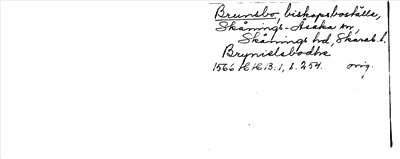 Brunsbo, biskopsboställe,
Skånings-Asaka sn,
Skånings hd, Skarab. l.
Brynielsbodhe
1566 HH B:1, s. 254. orig.